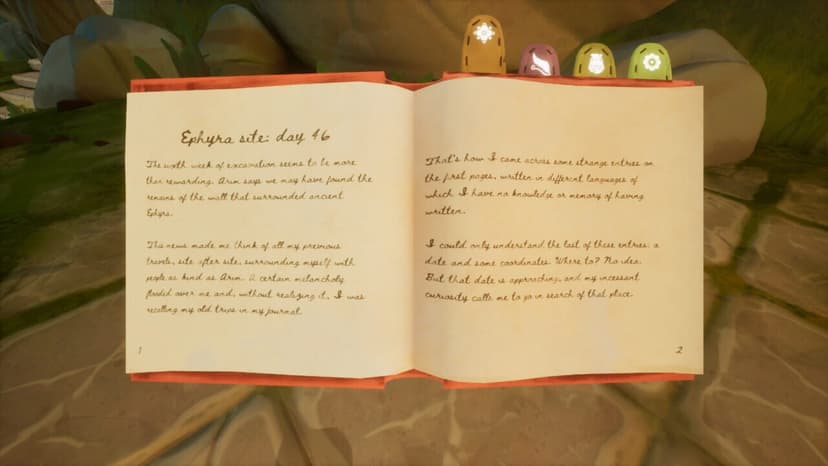 Ephyra site: day 46
The sixth week of excavation seems to be more
than rewarding. Arim says we may have found the
remains of the wall that surrounded ancient
Ephyra.
The news made me think of all my previous
travels, site after site, surrounding myself with
people as kind as Arim. A certain melancholy
flooded over me and, without realizing it, I was
recalling my old trips in my journal.
1
That's how I came across some strange entries on
the first pages, written in different languages of
which I have no knowledge or memory of having
written.
I could only understand the last of these entries: a
date and some coordinates. Where to? No idea.
But that date is approaching, and my incessant
curiosity calls me to go in search of that place.
2